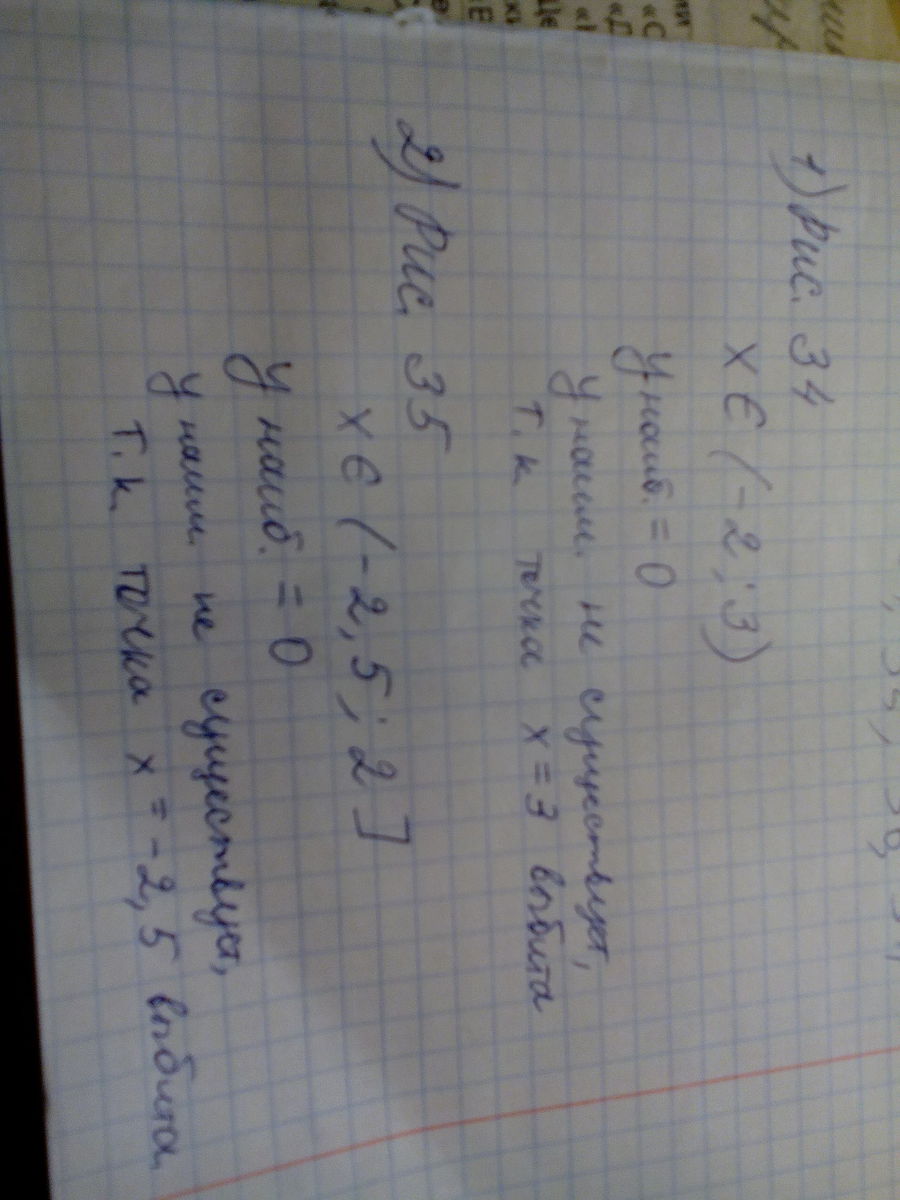 1) Рис. 34
x ∈ (-2 ; 3)
y наиб. = 0
y наим. не существует,
т.к. точка x = 3 выбита
2) Рис. 35
x ∈ (-2,5 ; 2]
y наиб. = 0
y наим. не существует,
т.к. точка x = -2,5 выбита.